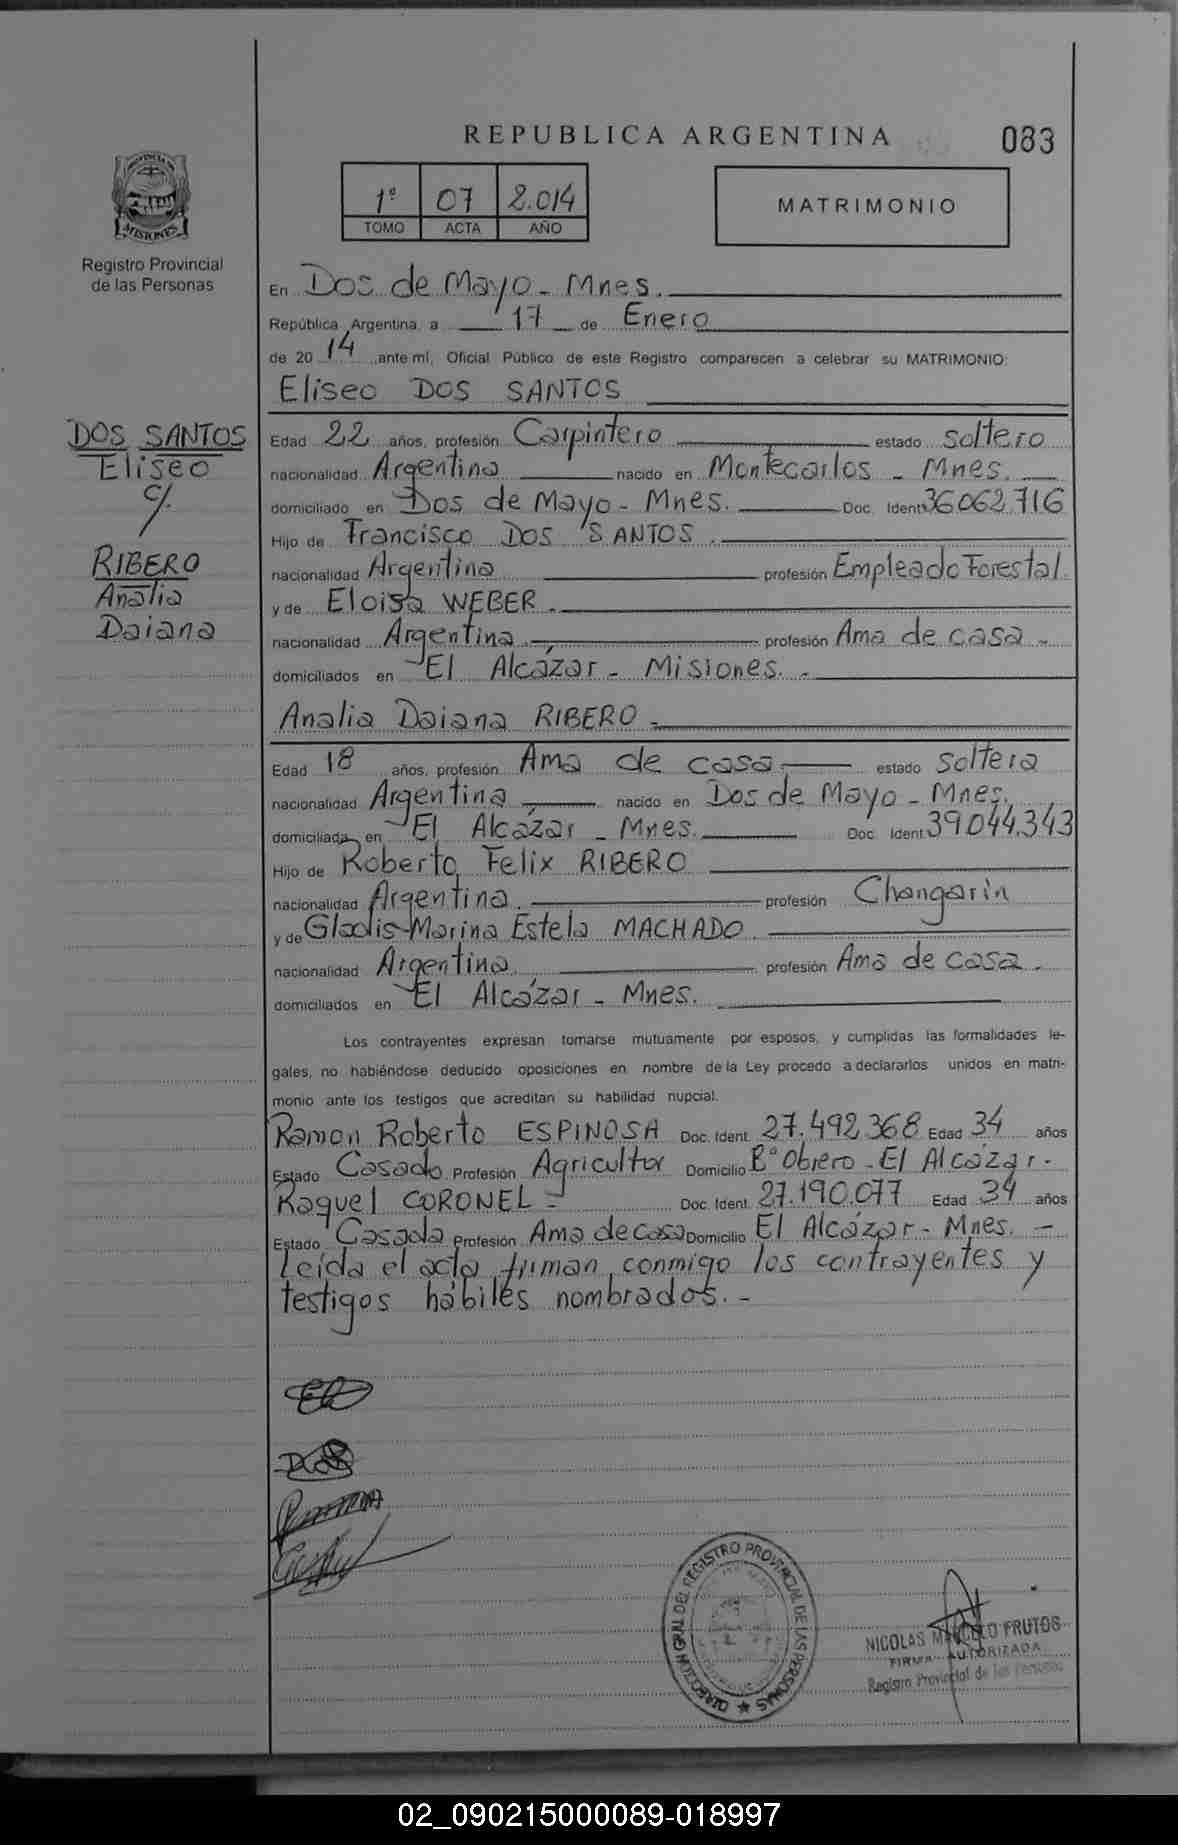 REPUBLICA ARGENTINA
083
PROVINCIA DE
MISIONES
Registro Provincial
de las Personas
1º 07 2.014
TOMO ACTA AÑO
MATRIMONIO
En Dos de Mayo - Mnes.
República Argentina, a 17 de Enero
de 20 14 ante mí, Oficial Público de este Registro comparecen a celebrar su MATRIMONIO:
Eliseo DOS SANTOS
DOS SANTOS
Eliseo
c/.
RIBERO
Analia
Daiana
Edad 22 años, profesión Carpintero estado soltero
nacionalidad Argentina nacido en Montecarlos - Mnes.
domiciliado en Dos de Mayo - Mnes. Doc. Ident. 36062.716
Hijo de Francisco DOS SANTOS.
nacionalidad Argentina profesión Empleado Forestal.
y de Eloisa WEBER.
nacionalidad Argentina. profesión Ama de casa -
domiciliados en El Alcázar - Misiones. -
Analia Daiana RIBERO -
Edad 18 años, profesión Ama de casa estado soltera
nacionalidad Argentina nacido en Dos de Mayo - Mnes.
domiciliada en El Alcázar - Mnes. Doc. Ident. 39044.343
Hijo de Roberto Felix RIBERO
nacionalidad Argentina. profesión Changarin
y de Gladis Marina Estela MACHADO.
nacionalidad Argentina. profesión Ama de casa.
domiciliados en El Alcázar - Mnes.
Los contrayentes expresan tomarse mutuamente por esposos, y cumplidas las formalidades le-
gales, no habiéndose deducido oposiciones en nombre de la Ley procedo a declararlos unidos en matri-
monio ante los testigos que acreditan su habilidad nupcial.
Ramon Roberto ESPINOSA Doc. Ident. 27.492.368 Edad 34 años
Estado Casado Profesión Agricultor Domicilio Bº Obrero - El Alcázar.
Raquel CORONEL - Doc. Ident. 27.190.077 Edad 34 años
Estado Casada Profesión Ama de casa Domicilio El Alcázar - Mnes. -
Leída el acta firman conmigo los contrayentes y
testigos hábiles nombrados. -
DIRECCION GRAL DEL REGISTRO PROVINCIAL DE LAS PERSONAS
NICOLAS MARCELO FRUTOS
FIRMA AUTORIZADA
Registro Provincial de las Personas
02_090215000089-018997